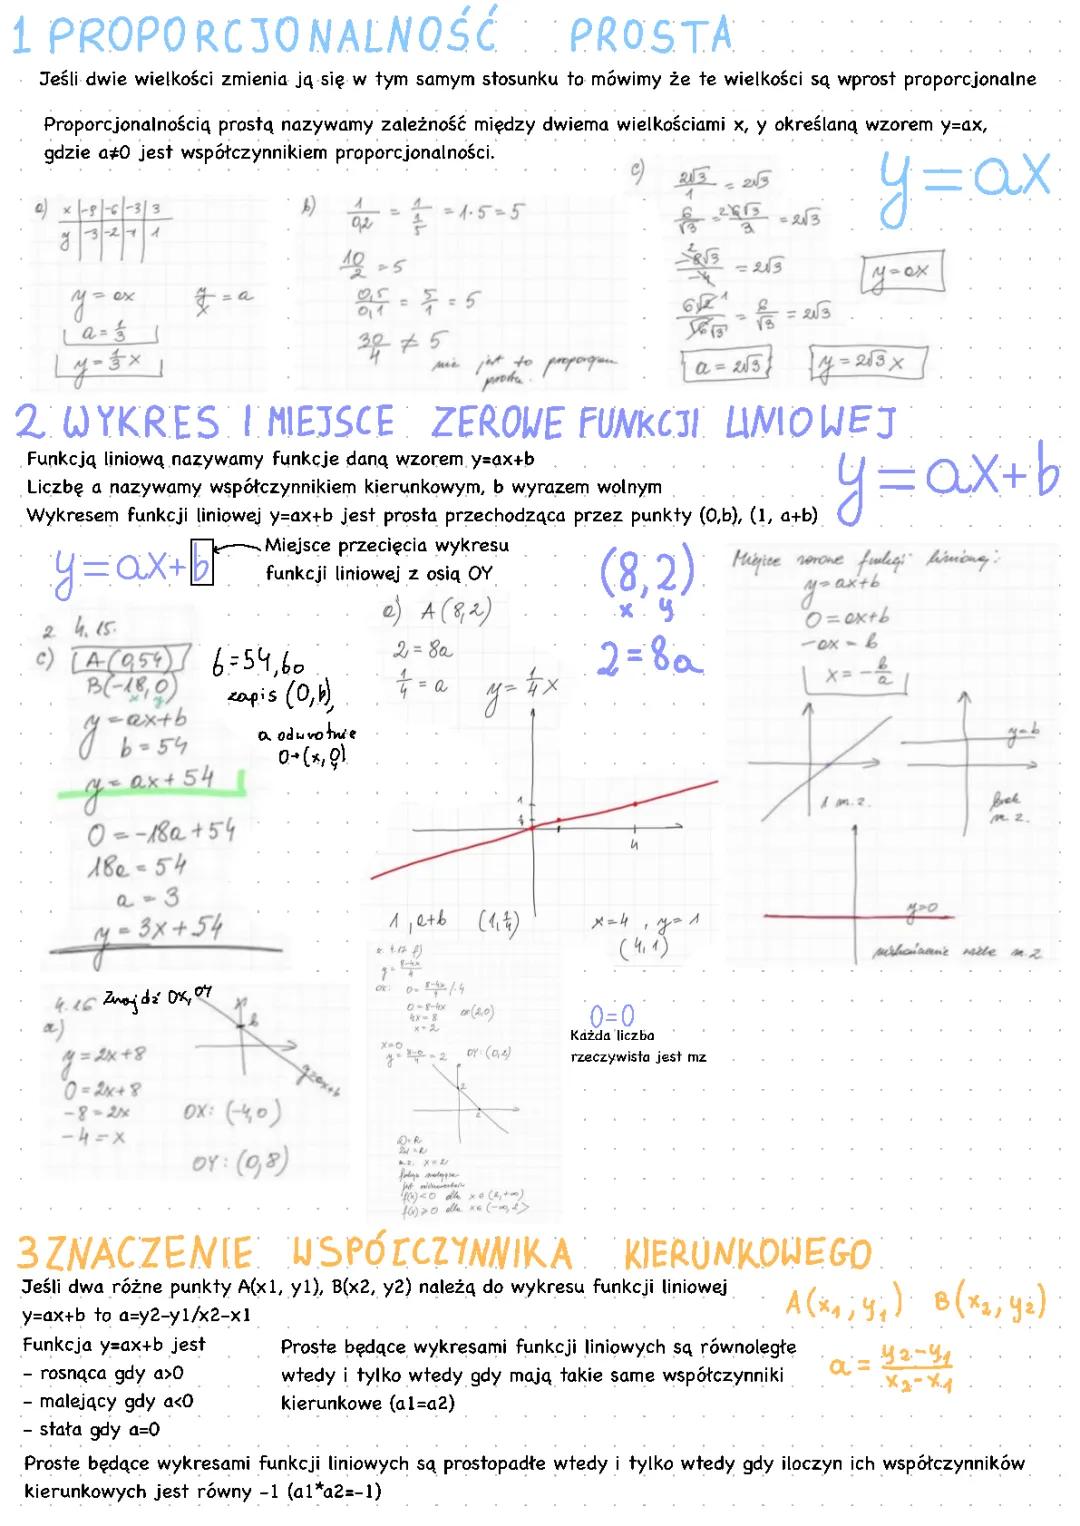 1 PROPORCJONALNOŚĆ PROSTA
Jeśli dwie wielkości zmienia ją się w tym samym stosunku to mówimy że te wielkości są wprost proporcjonalne
Proporcjonalnością prostą nazywamy zależność między dwiema wielkościami x, y określaną wzorem y=ax,
gdzie a≠0 jest współczynnikiem proporcjonalności.
y=ax
a) x | -9 | -6 | -3 | 3
y | -3 | -2 | -1 | 1
y = ax y/x = a
a = 1/3
y = 1/3 x
b) 1/0,2 = 1/(1/5) = 1·5 = 5
10/2 = 5
0,5/0,1 = 5/1 = 5
30/4 ≠ 5
nie jest to
c) 2√3/1 = 2√3
= 2√3
= 2√3
= 6/√3 = 2√3
y = ax
a = 2√3
y = 2√3 x
2 WYKRES I MIEJSCE ZEROWE FUNKCJI LINIOWEJ
Funkcją liniową nazywamy funkcje daną wzorem y=ax+b
Liczbę a nazywamy współczynnikiem kierunkowym, b wyrazem wolnym
Wykresem funkcji liniowej y=ax+b jest prosta przechodząca przez punkty (0,b), (1, a+b)
y=ax+b
y=ax+b
Miejsce przecięcia wykresu
funkcji liniowej z osią OY
2 4.15.
c) A(0,54)
B(-18,0)
x y
y = ax+b
b = 54
y = ax + 54
0 = -18a + 54
18a = 54
a = 3
y = 3x + 54
b=54, bo
zapis (0,b),
a odwrotnie
0→(x,0)
y
a) A(8,2)
2 = 8a
1/4 = a y = 1/4 x
(8,2)
x y
2=8a
1
1/4
4
1, a+b (1, 1/4) x=4, y=1
(4,1)
Miejsce zerowe funkcji liniowej:
y = ax+b
0 = ax+b
-ax = b
x = -b/a
1 m.z.
y=b
brak
m z.
y=0
m.z
4.16 Znajdź OX, OY
a)
y = 2x+8
0 = 2x+8
-8 = 2x
-4 = x
b
y=ax+b
OX: (-4,0)
OY: (0,8)
z. 4.17 f)
y = 8-4x/4
OX: 0 = 8-4x/4 /·4
0 = 8-4x
4x = 8
x = 2
OX (2,0)
x=0
y = 8-0/4 = 2 OY: (0,2)
2
2
D=R
m.z. x=2
f(x)<0 dla x∈(2,+∞)
0=0
Każda liczba
rzeczywista jest mz
3 ZNACZENIE WSPÓŁCZYNNIKA KIERUNKOWEGO
Jeśli dwa różne punkty A(x1, y1), B(x2, y2) należą do wykresu funkcji liniowej
y=ax+b to a=y2-y1/x2-x1
A(x₁, y₁) B(x₂, y₂)
a = y₂-y₁/x₂-x₁
Funkcja y=ax+b jest
- rosnąca gdy a>0
- malejący gdy a<0
- stała gdy a=0
Proste będące wykresami funkcji liniowych są równoległe
wtedy i tylko wtedy gdy mają takie same współczynniki
kierunkowe (a1=a2)
Proste będące wykresami funkcji liniowych są prostopadłe wtedy i tylko wtedy gdy iloczyn ich współczynników
kierunkowych jest równy -1 (a1*a2=-1)